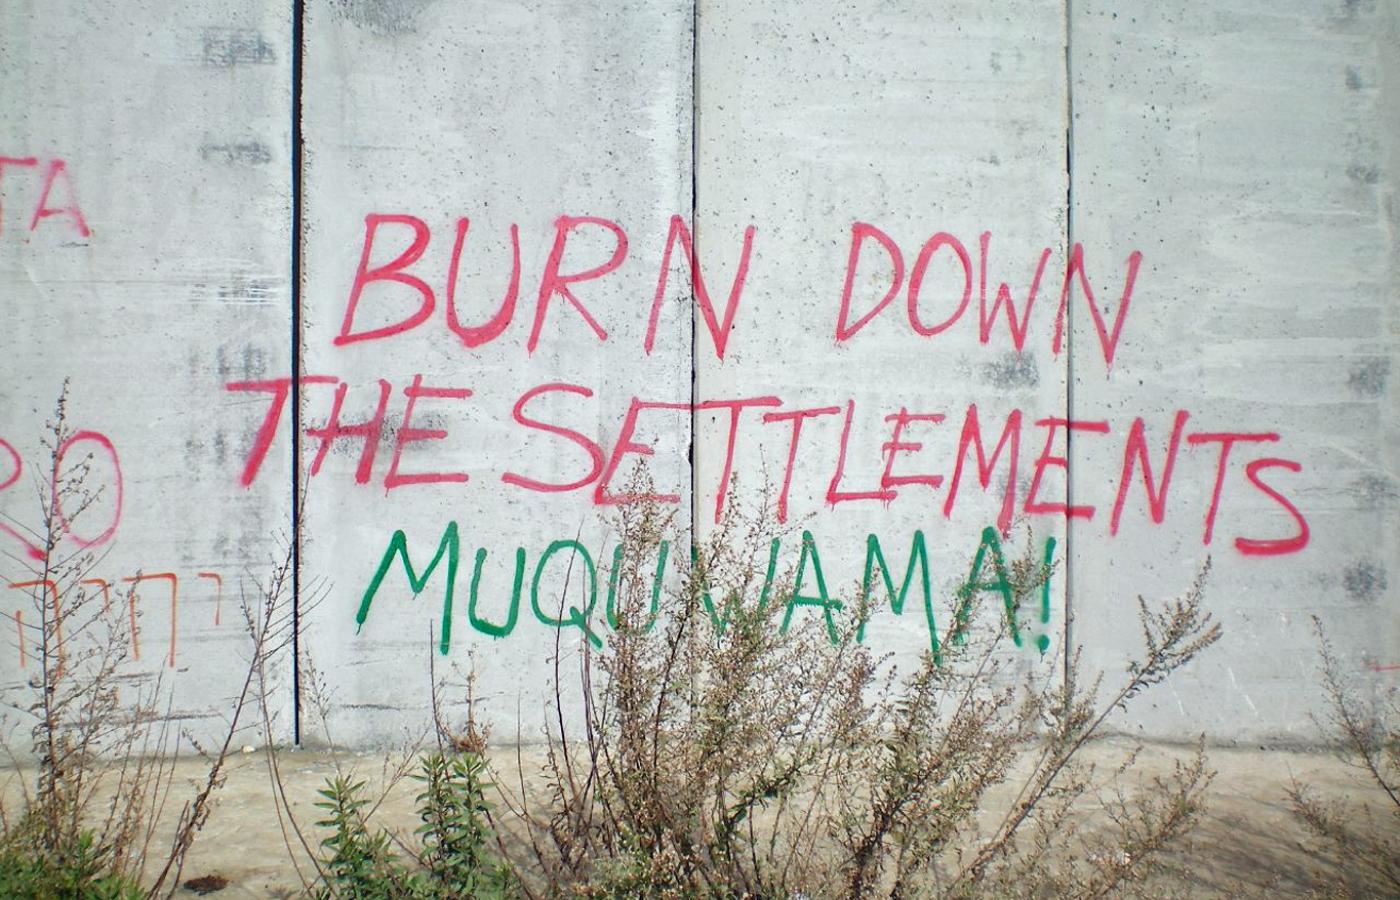 TA
BURN DOWN
THE SETTLEMENTS
RO
MUQUWAMA!